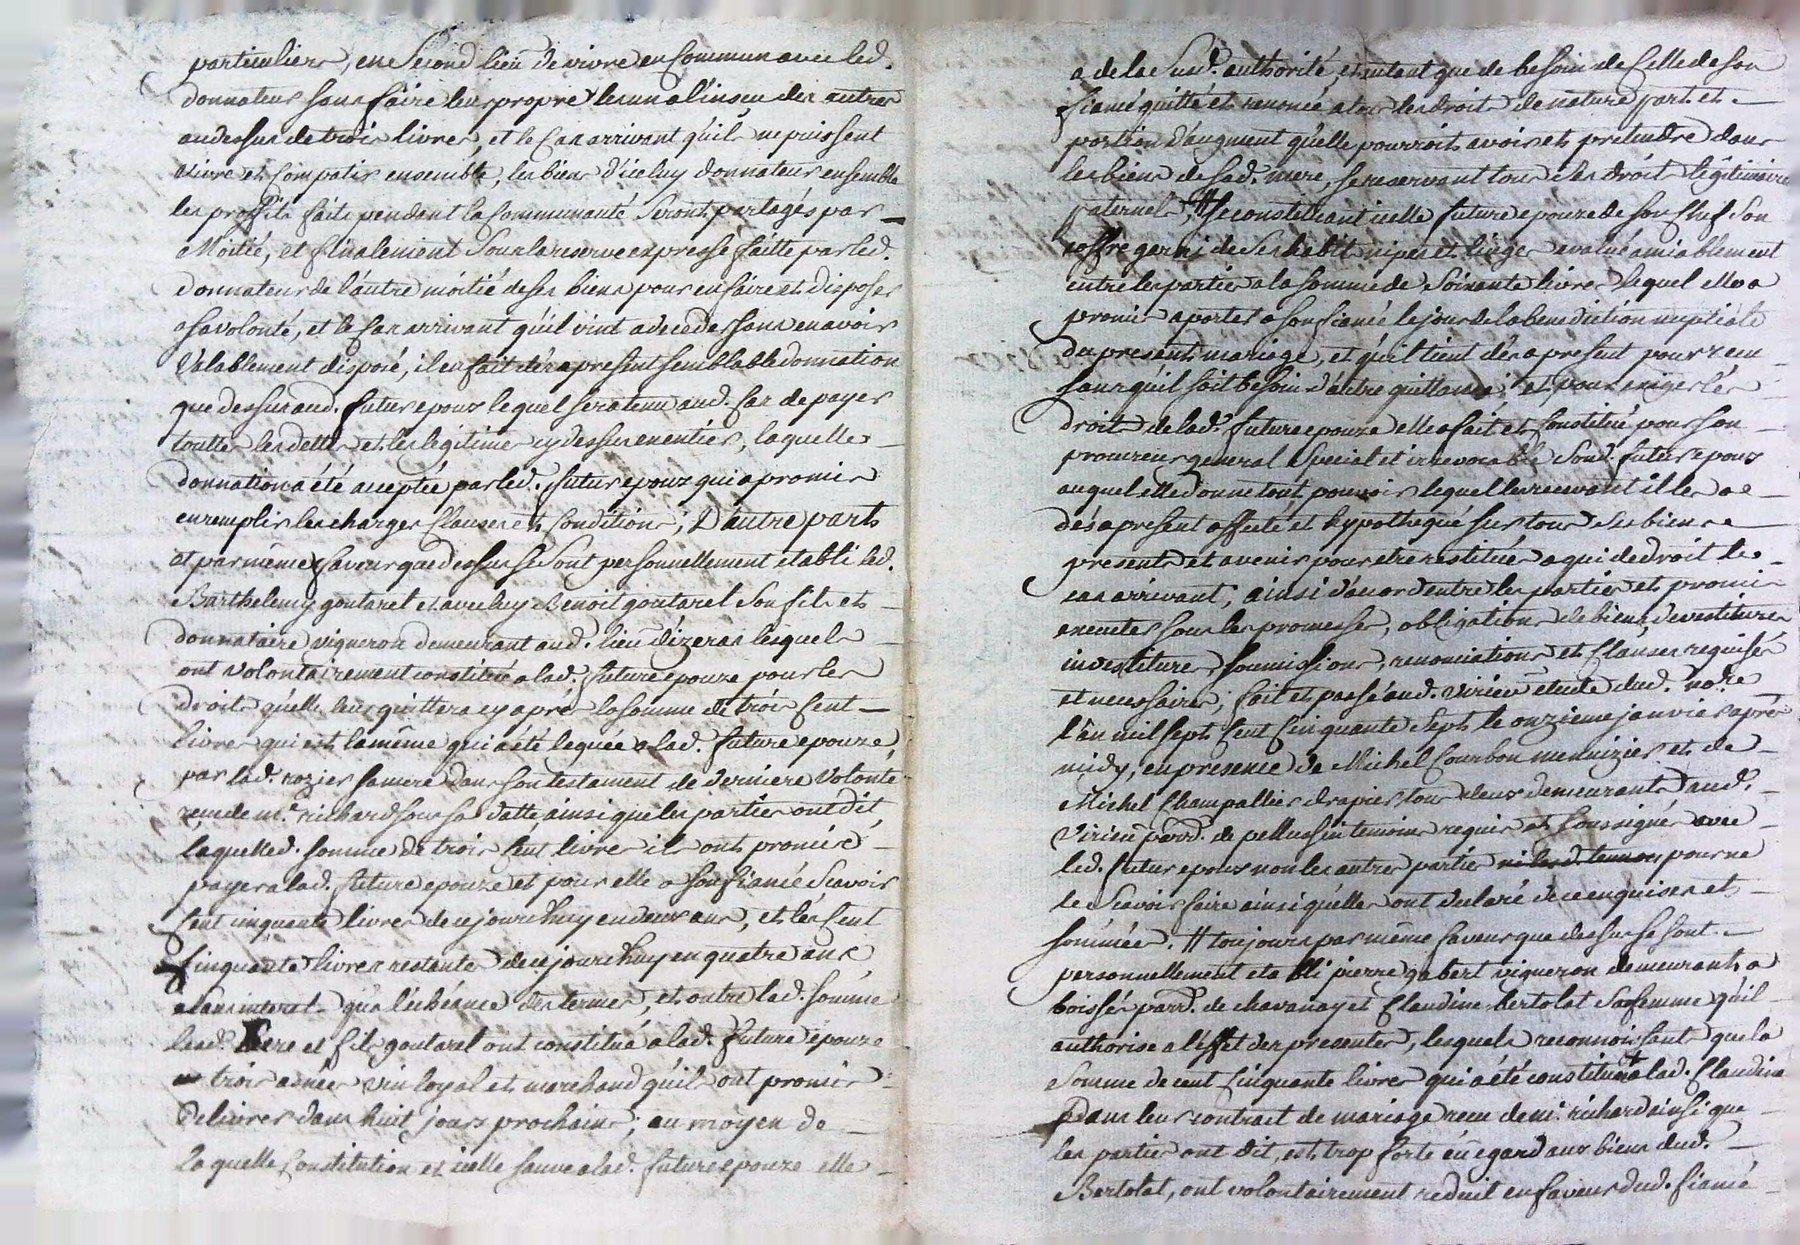 particuliers, en second lieu de vivre en commun avec led.
donnateur sans faire leur propre les un a l'inscu des autres
au dessus de trois livres, et le cas arrivant qu'ils ne puissent
vivre et compatir ensemble, les biens d'iceluy donnateur ensemble
les proffits faits pendent la communauté seront partagés par
Moitié, et finalement sous la reserve expresse faitte par led.
donnateur de l'autre moitié de ses biens pour en faire et disposer
a sa volonté, et le cas arrivant qu'il vint a deceder sans en avoir
valablement disposé, il en fait dés a present semblable donnation
que dessus aud. futur epoux lequel sera tenu aud. cas de payer
toutte les dettes et les legitimes cy dessus en entier, laquelle
donnation a été acceptée par led. futur epoux qui a promis
en remplir les charges clauses et conditions; D'autre part
et par même faveur que dessus se sont personnellement etabli led.
Barthelemy goutarel et avec luy Benoit goutarel son fils et
donnataire vigneron demeurant aud. lieu d'izeras lesquels
ont volontairement constitué a lad. future epouze pour les
droits qu'elle leur quittera cy aprés la somme de trois cent
livres qui est la même qui a été leguée a lad. future epouze
par lad. rozier sa mere dans son testament de derniere volonté
reçu de m.e richard sous sa datte, ainsi que les parties ont dit,
laquelled. somme de trois cent livres ils ont promis
payer a lad. future epouze et pour elle a son fiancé scavoir
cent cinquante livres de ce jourd'huy en deux ans, et les cent
cinquante livres restantes de ce jourd'huy en quatre ans
sans interet qu'a l'échéance des termes, et outre lad. somme
lesd. Pere et fils goutarel ont constitué a lad. future epouze
trois anées vin loyal et marchand qu'ils ont promis
delivrer dans huit jours prochains; au moyen de
laquelle constitution et icelle sauve a lad. future epouze elle
a de la susd. authorité, et en tant que de besoin de celle de son
fiancé quitté et renoncé a tous les droits de nature part et
portion d'augment qu'elle pourroit avoir et pretendre dans
les biens de sad. mere, se reservant tous ses droits légitimaires
paternels, # se constituant icelle future epouze de son chef son
coffre garni de ses habits nipes et linges evalué amiablement
entre les parties a la somme de soixante livres lequel elle a
promis aporter a son fiancé le jour de la benediction nuptiale
du present mariage, et qu'il tient dés a present pour reçu
sans qu'il soit besoin d'autre quittance; et pour exiger les
droits de lad. future epouze elle a fait et constitué pour son
procureur general special et irrevocable sond. futur epoux
auquel elle donne tout pouvoir lequel les recevant il les a
dés a present affecté et hypothequé sur tous ses biens
presents et avenir pour etre restitués a qui de droit le
cas arrivant; ainsi d'acord entre les parties et promis
executer sous les promesses, obligations de biens, devestitures
investitures, soumissions, renonciations et clauses requises
et necessaires; fait et passé aud. virieu etude dud. no.re
l'an mil sept cent cinquante sept le onzieme janvier aprés
midy, en presence de Michel Courbon menuizier et de
Michel Champallier drapier tous deux demeurants aud.
Virieu parr. de pellussin temoins requis et soussignés avec
led. futur epoux non les autres parties pour ne
le scavoir faire ainsi qu'elles ont declaré de ce enquises et
sommées. # toujours par même faveur que dessus se sont
personnellement etabli pierre gabert vigneron demeurant a
boissés parr. de chavanay et Claudine bertolat sa femme qu'il
authorise a l'effet des presentes, lesquels reconnoissant que la
somme de cent cinquante livres qui a été constituée a lad. Claudine
dans leur contract de mariage reçu de m.e richard ainsi que
les parties ont dit, est trop forte eu egard aux biens dud.
Bertolat, ont volontairement reduit en faveur dud. fiancé